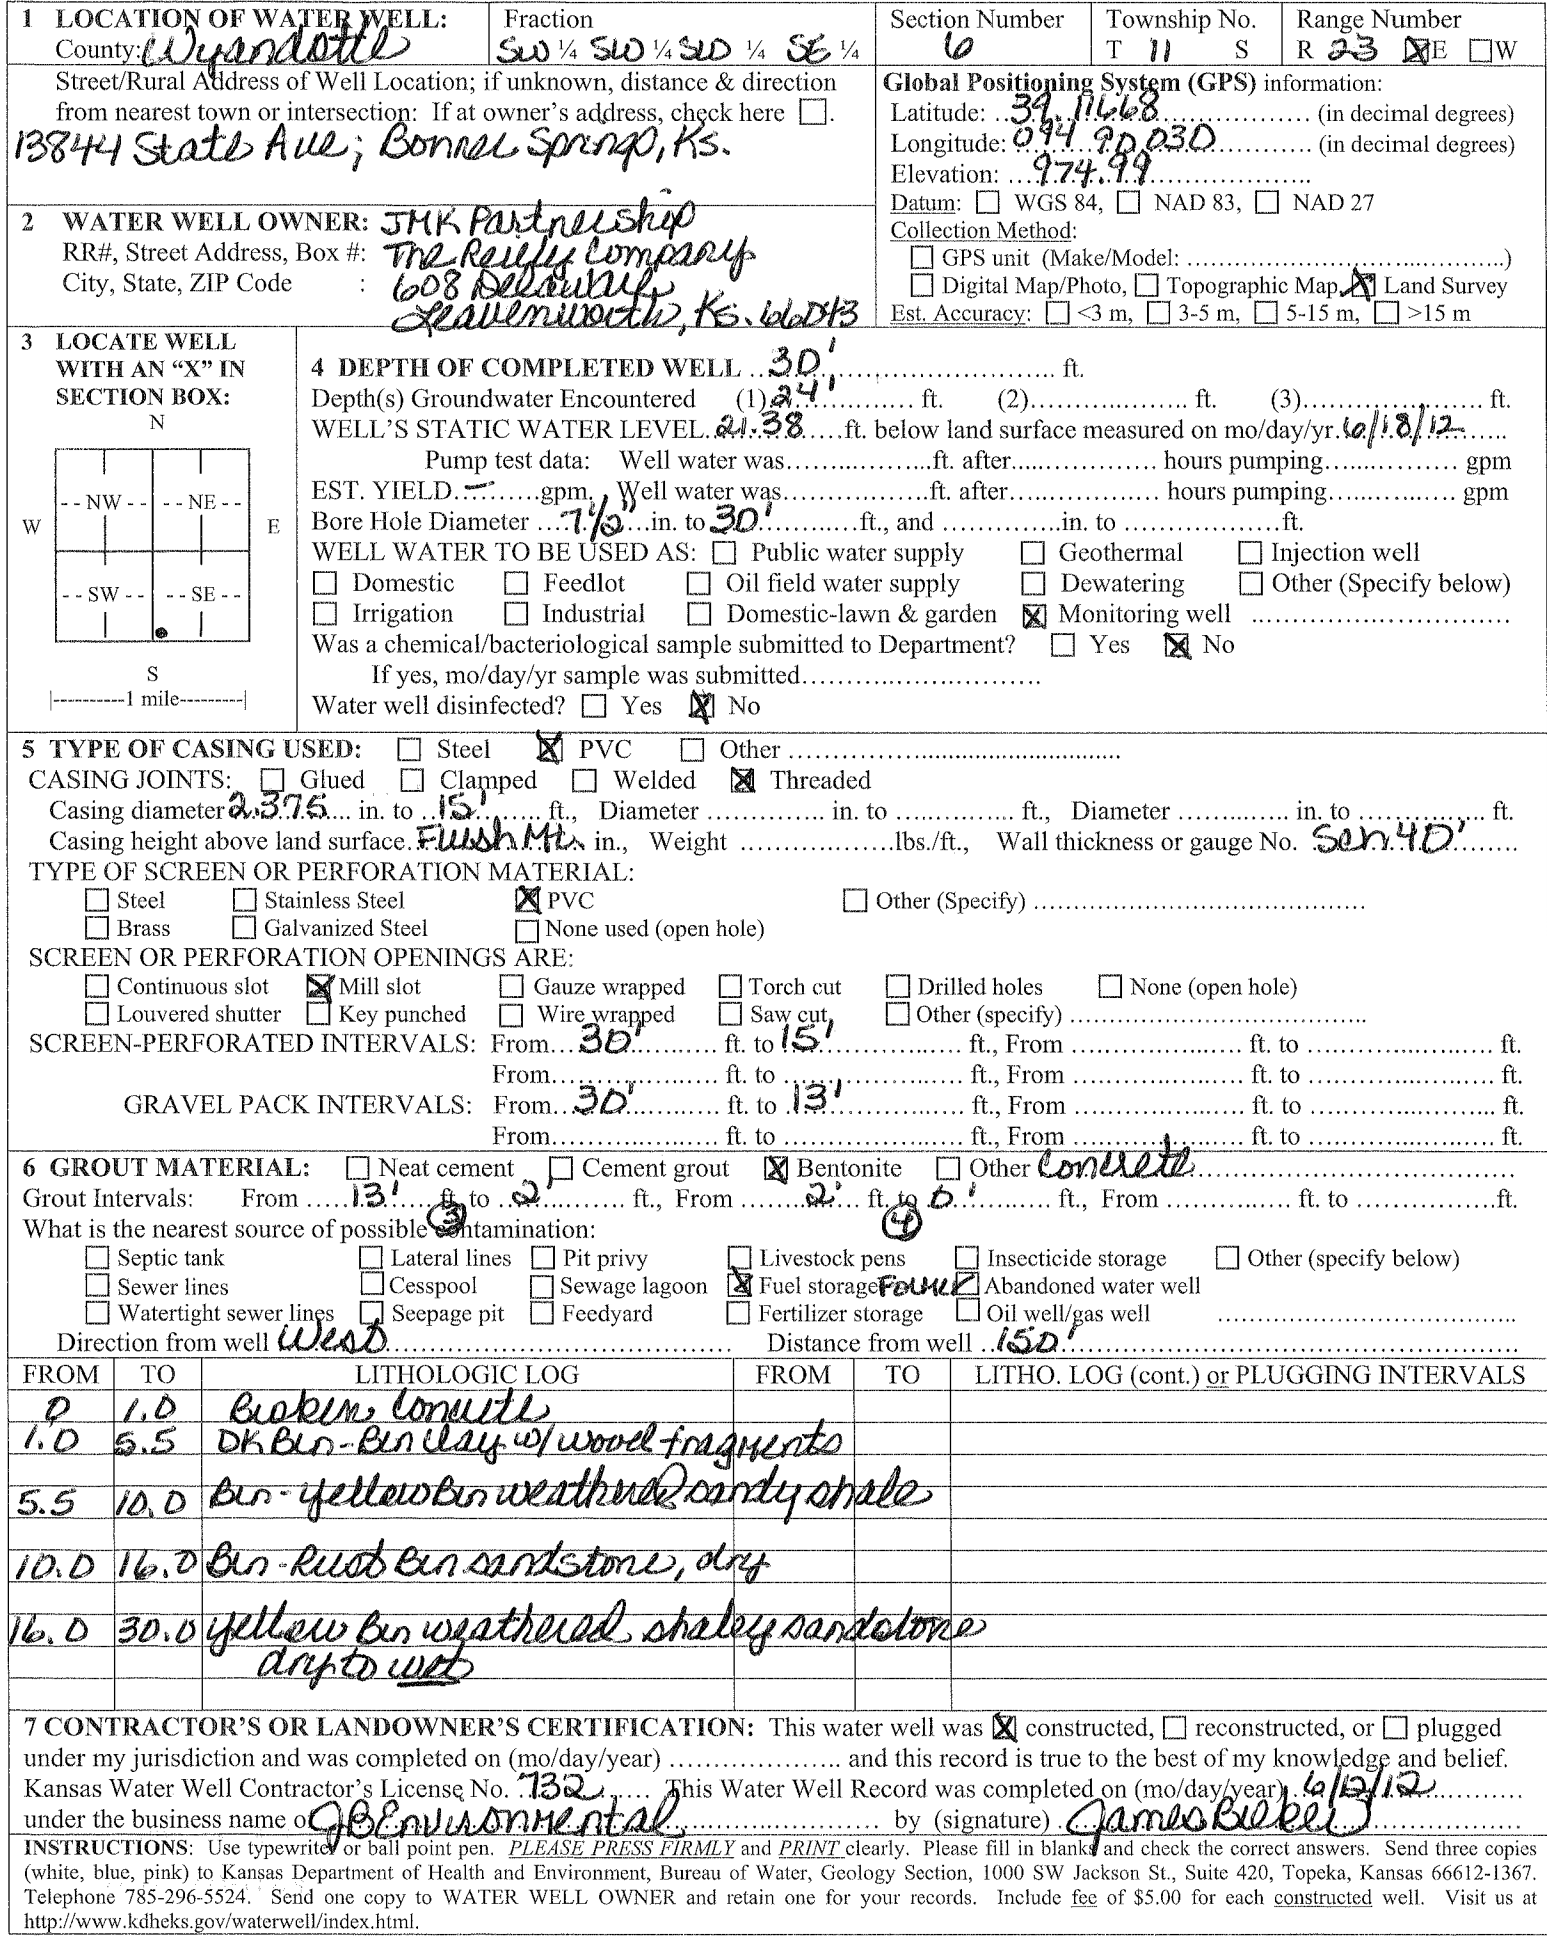 1 LOCATION OF WATER WELL: Fraction Section Number Township No. Range Number
County: Wyandotte SW ¼ SW ¼ SW ¼ SE ¼ 6 T 11 S R 23 ☒E ☐W
Street/Rural Address of Well Location; if unknown, distance & direction
from nearest town or intersection: If at owner's address, check here ☐.
13844 State Ave; Bonner Springs, Ks.
Global Positioning System (GPS) information:
Latitude: 39.11668 (in decimal degrees)
Longitude: 094.90030 (in decimal degrees)
Elevation: 974.99
Datum: ☐ WGS 84, ☐ NAD 83, ☐ NAD 27
Collection Method:
☐ GPS unit (Make/Model: ....................)
☐ Digital Map/Photo, ☐ Topographic Map, ☒ Land Survey
Est. Accuracy: ☐ <3 m, ☐ 3-5 m, ☐ 5-15 m, ☐ >15 m
2 WATER WELL OWNER: JMK Partnership
RR#, Street Address, Box #: The Reilly Company
City, State, ZIP Code : 608 Delaware
Leavenworth, Ks. 66043
3 LOCATE WELL
WITH AN "X" IN
SECTION BOX:
N
NW NE
W E
SW SE
S
1 mile
4 DEPTH OF COMPLETED WELL 30' ft.
Depth(s) Groundwater Encountered (1) 24' ft. (2) ft. (3) ft.
WELL'S STATIC WATER LEVEL 21.38 ft. below land surface measured on mo/day/yr. 6/18/12
Pump test data: Well water was ft. after hours pumping gpm
EST. YIELD – gpm. Well water was ft. after hours pumping gpm
Bore Hole Diameter 7 1/2" in. to 30' ft., and in. to ft.
WELL WATER TO BE USED AS: ☐ Public water supply ☐ Geothermal ☐ Injection well
☐ Domestic ☐ Feedlot ☐ Oil field water supply ☐ Dewatering ☐ Other (Specify below)
☐ Irrigation ☐ Industrial ☐ Domestic-lawn & garden ☒ Monitoring well
Was a chemical/bacteriological sample submitted to Department? ☐ Yes ☒ No
If yes, mo/day/yr sample was submitted
Water well disinfected? ☐ Yes ☒ No
5 TYPE OF CASING USED: ☐ Steel ☒ PVC ☐ Other
CASING JOINTS: ☐ Glued ☐ Clamped ☐ Welded ☒ Threaded
Casing diameter 2.375 in. to 15' ft., Diameter in. to ft., Diameter in. to ft.
Casing height above land surface Flush Mt. in., Weight lbs./ft., Wall thickness or gauge No. Sch. 40'
TYPE OF SCREEN OR PERFORATION MATERIAL:
☐ Steel ☐ Stainless Steel ☒ PVC ☐ Other (Specify)
☐ Brass ☐ Galvanized Steel ☐ None used (open hole)
SCREEN OR PERFORATION OPENINGS ARE:
☐ Continuous slot ☒ Mill slot ☐ Gauze wrapped ☐ Torch cut ☐ Drilled holes ☐ None (open hole)
☐ Louvered shutter ☐ Key punched ☐ Wire wrapped ☐ Saw cut ☐ Other (specify)
SCREEN-PERFORATED INTERVALS: From 30' ft. to 15' ft., From ft. to ft.
From ft. to ft., From ft. to ft.
GRAVEL PACK INTERVALS: From 30' ft. to 13' ft., From ft. to ft.
From ft. to ft., From ft. to ft.
6 GROUT MATERIAL: ☐ Neat cement ☐ Cement grout ☒ Bentonite ☐ Other Concrete
Grout Intervals: From 13' ft. to 2' ft., From 2' ft. to 0' ft., From ft. to ft.
What is the nearest source of possible contamination: 3 4
☐ Septic tank ☐ Lateral lines ☐ Pit privy ☐ Livestock pens ☐ Insecticide storage ☐ Other (specify below)
☐ Sewer lines ☐ Cesspool ☐ Sewage lagoon ☒ Fuel storage Former ☐ Abandoned water well
☐ Watertight sewer lines ☐ Seepage pit ☐ Feedyard ☐ Fertilizer storage ☐ Oil well/gas well
Direction from well West Distance from well 150'
FROM TO LITHOLOGIC LOG FROM TO LITHO. LOG (cont.) or PLUGGING INTERVALS
0 1.0 Broken Concrete
1.0 5.5 DK Brn-Brn Clay w/ wood fragments
5.5 10.0 Brn-yellow Brn weathered sandy shale
10.0 16.0 Brn-Rust Brn sandstone, dry
16.0 30.0 yellow Brn weathered shaley sandstone
dry to wet
7 CONTRACTOR'S OR LANDOWNER'S CERTIFICATION: This water well was ☒ constructed, ☐ reconstructed, or ☐ plugged
under my jurisdiction and was completed on (mo/day/year) and this record is true to the best of my knowledge and belief.
Kansas Water Well Contractor's License No. 732 This Water Well Record was completed on (mo/day/year) 6/12/12
under the business name of JB Environmental by (signature) James Bieker
INSTRUCTIONS: Use typewriter or ball point pen. PLEASE PRESS FIRMLY and PRINT clearly. Please fill in blanks and check the correct answers. Send three copies
(white, blue, pink) to Kansas Department of Health and Environment, Bureau of Water, Geology Section, 1000 SW Jackson St., Suite 420, Topeka, Kansas 66612-1367.
Telephone 785-296-5524. Send one copy to WATER WELL OWNER and retain one for your records. Include fee of $5.00 for each constructed well. Visit us at
http://www.kdheks.gov/waterwell/index.html.